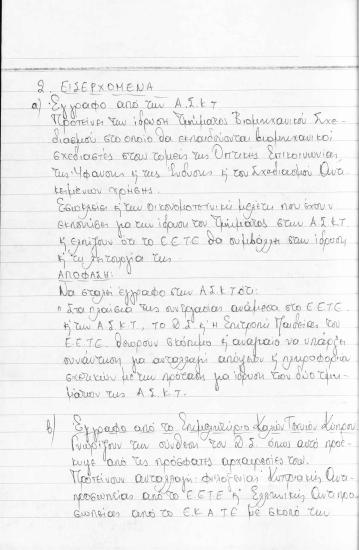 2. ΕΙΣΕΡΧΟΜΕΝΑ
α) Έγγραφο από την Α.Σ.Κ.Τ
Προτείνει την ίδρυση Τμήματος Βιομηχανικού Σχε-
διασμού στο οποίο θα εκπαιδεύονται βιομηχανικοί
σχεδιαστές στους τομείς της Οπτικής Επικοινωνίας
της Ύφανσης ή της Ένδυσης ή του Σχεδιασμού Αντι-
κειμένων χρήσης.
Εσωκλείει ή την οικονομοτεχνική μελέτη που έχουν
εκπονήσει για την ίδρυση του Τμήματος στην Α.Σ.Κ.Τ
ή ελπίζουν ότι το Ε.Ε.Τ.Ε θα συμβάλλει στην ίδρυση
ή τη λειτουργία της.
ΑΠΟΦΑΣΗ:
Να σταλεί έγγραφο στην Α.Σ.Κ.Τ ότι:
" Στα πλαίσια της συνεργασίας ανάμεσα στο Ε.Ε.Τ.Ε.
ή την Α.Σ.Κ.Τ, το Δ.Σ ή η Επιτροπή Παιδείας του
Ε.Ε.Τ.Ε. θεωρούν σκόπιμο ή αναγκαίο να υπάρξει
συνάντηση για ανταλλαγή απόψεων ή πληροφοριών
σχετικών με την πρόταση για ίδρυση των δύο τμη-
μάτων της Α.Σ.Κ.Τ.
β) Έγγραφο από το Επιμελητήριο Καλών Τεχνών Κύπρου
Γνωρίζουν την σύνθεση του Δ.Σ. όπως αυτό προέ-
κυψε από τις πρόσφατες αρχαιρεσίες του.
Προτείνουν ανταλλαγή φιλοξενίας Κυπριακής Αντι-
προσωπείας από το Ε.Ε.Τ.Ε ή Ελληνικής Αντιπρο-
σωπείας από το Ε.ΚΑ.ΤΕ με σκοπό την